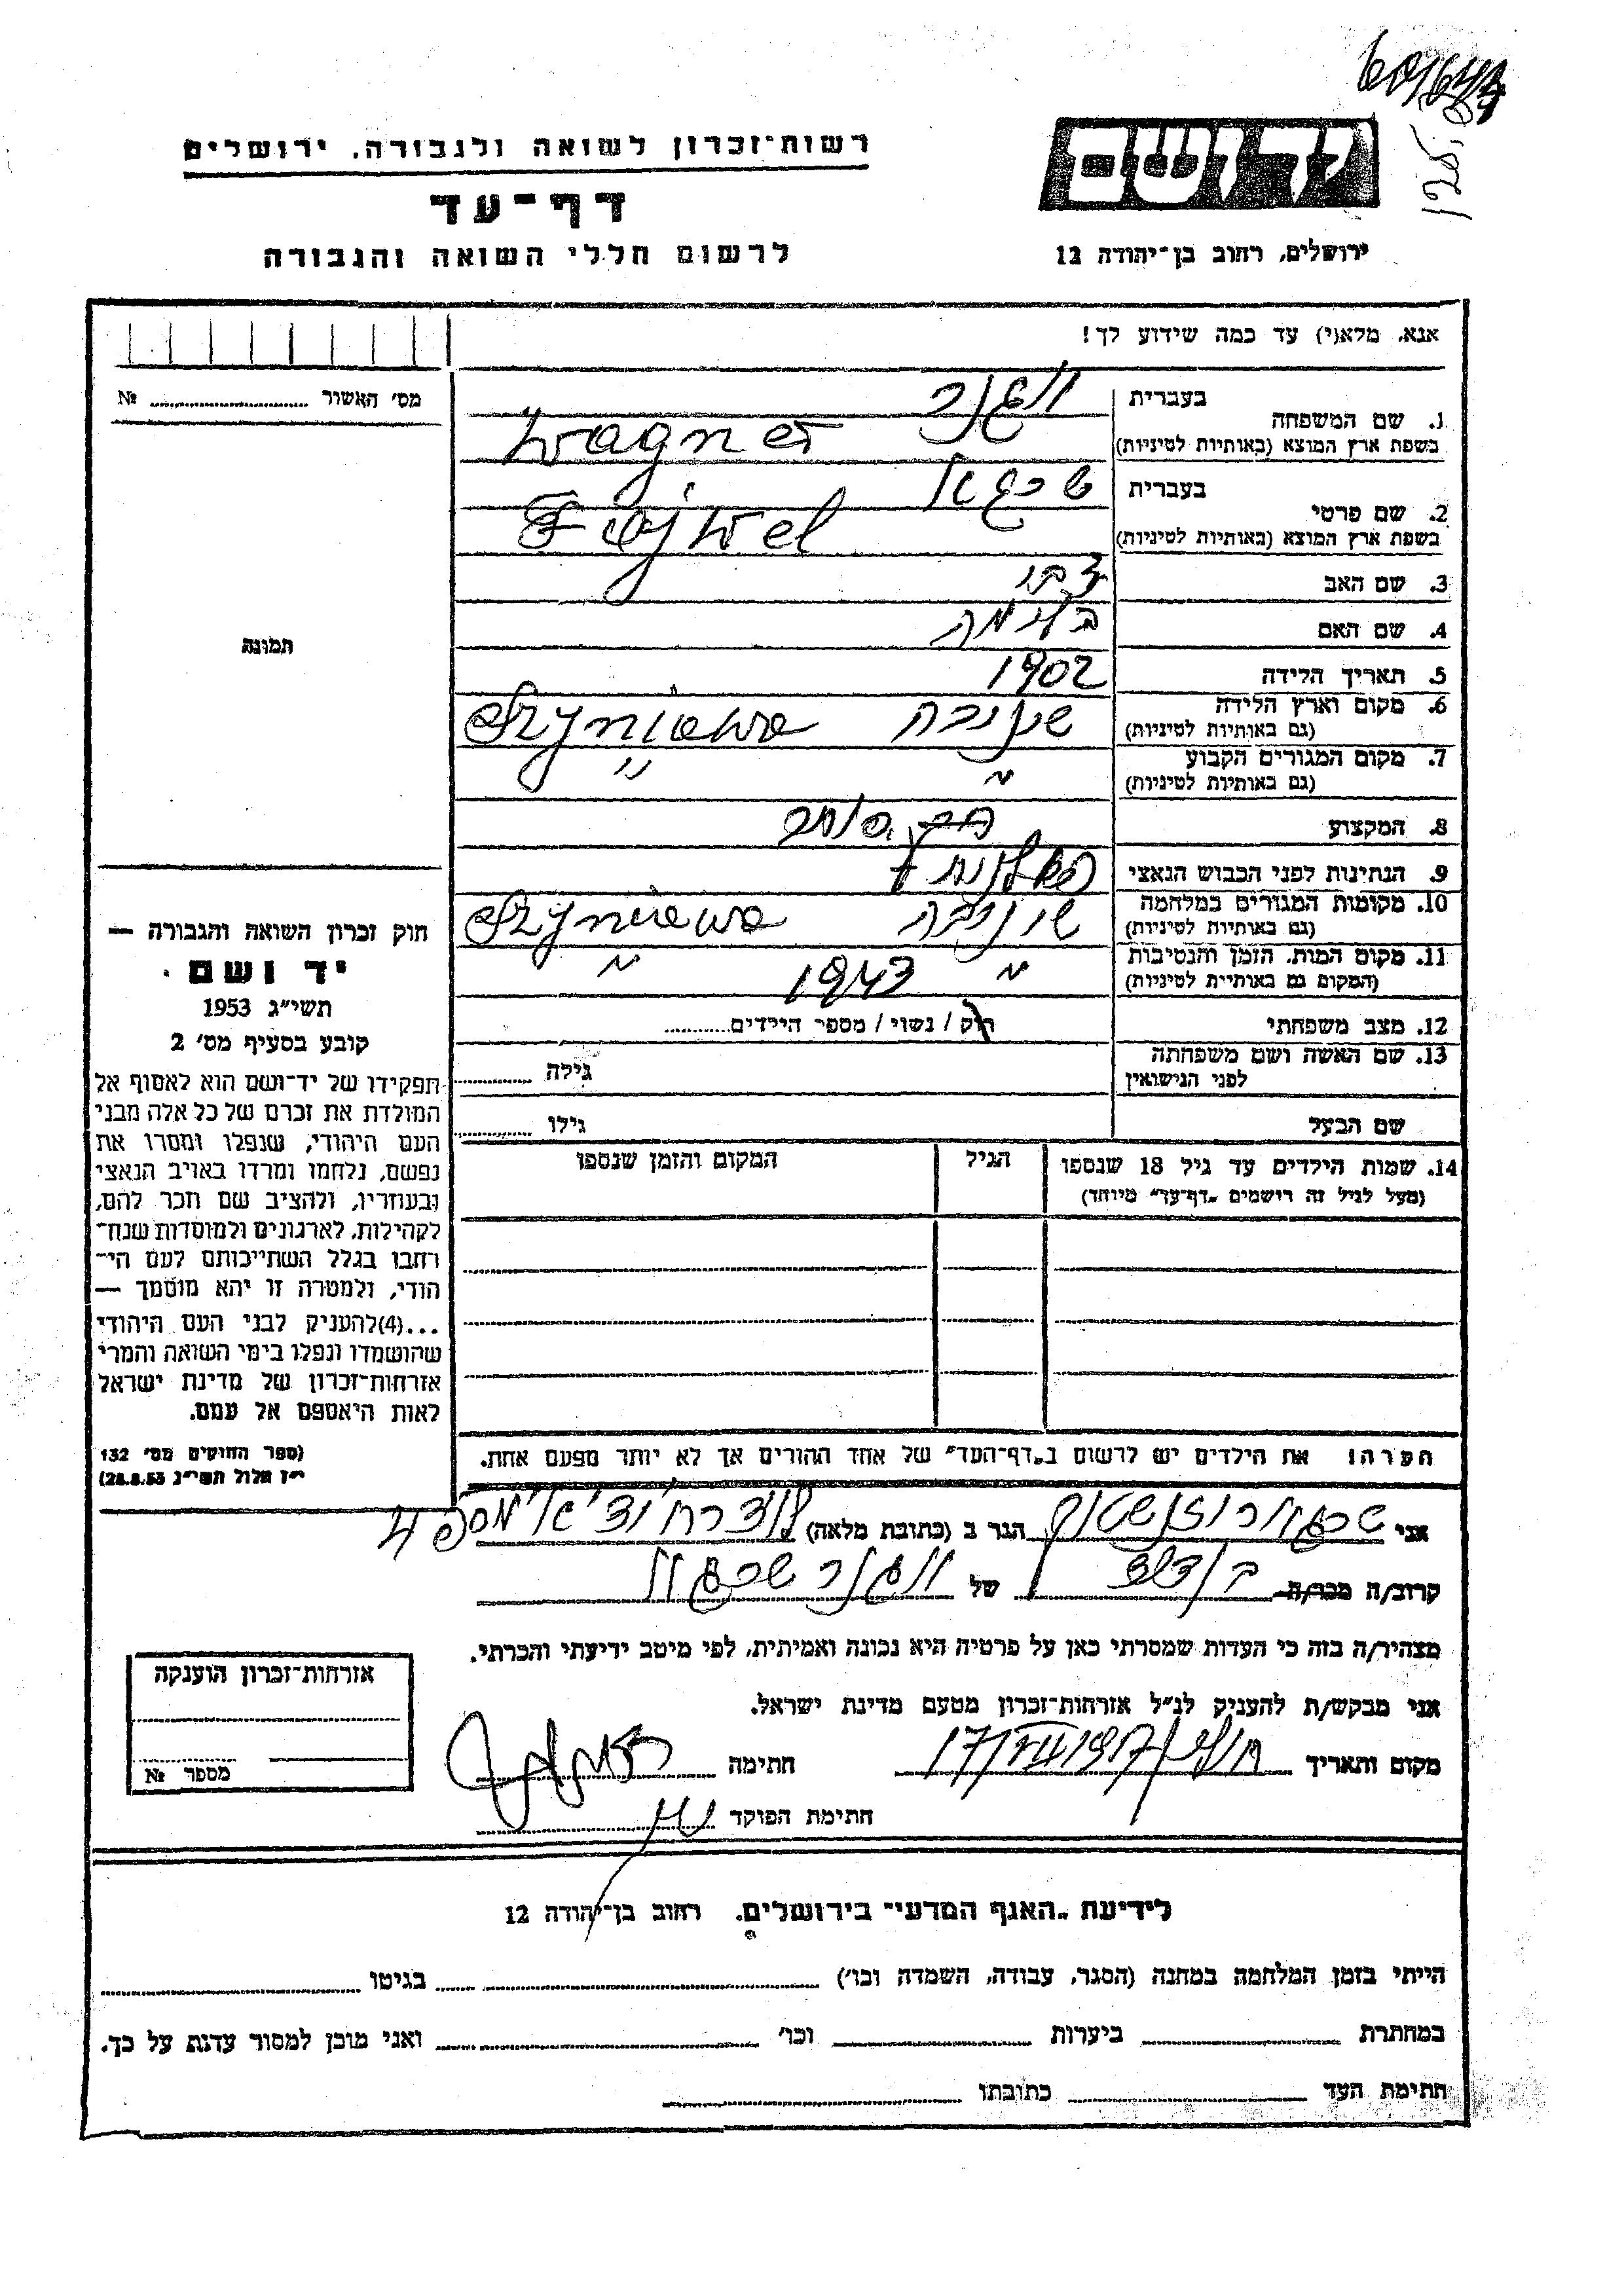 רשות־זכרון לשואה ולגבורה, ירושלים
דף־עד
לרשום חללי השואה והגבורה
יד ושם
ירושלים, רחוב בן־יהודה 12
אנא, מלא(י) עד כמה שידוע לך!
מס׳ האשור № ........
תמונה
1. שם המשפחה
בעברית
ווגנר
בשפת ארץ המוצא (באותיות לטיניות)
Wagner
2. שם פרטי
בעברית
שרגא
בשפת ארץ המוצא (באותיות לטיניות)
Fajwel
3. שם האב
צבי
4. שם האם
5. תאריך הלידה
1902
6. מקום וארץ הלידה
(גם באותיות לטיניות)
שינובה Szyniawa
7. מקום המגורים הקבוע
(גם באותיות לטיניות)
" "
8. המקצוע
סוחר
9. הנתינות לפני הכבוש הנאצי
10. מקומות המגורים במלחמה
(גם באותיות לטיניות)
שינובה Szyniawa
11. מקום המות, הזמן והנסיבות
(המקום גם באותיות לטיניות)
" 1943 "
12. מצב משפחתי
רוק / נשוי / מספר הילדים........
13. שם האשה ושם משפחתה
לפני הנישואין
גילה ........
שם הבעל
גילו ........
14. שמות הילדים עד גיל 18 שנספו
(מעל לגיל זה רושמים „דף־עד״ מיוחד)
הגיל
המקום והזמן שנספו
הערה: את הילדים יש לרשום ב„דף־העד״ של אחד ההורים אך לא יותר מפעם אחת.
חוק זכרון השואה והגבורה —
יד ושם
תשי״ג 1953
קובע בסעיף מס׳ 2
תפקידו של יד־ושם הוא לאסוף אל
המולדת את זכרם של כל אלה מבני
העם היהודי, שנפלו ומסרו את
נפשם, נלחמו ומרדו באויב הנאצי
ובעוזריו, ולהציב שם וזכר להם,
לקהילות, לארגונים ולמוסדות שנח־
רבו בגלל השתייכותם לעם הי־
הודי, ולמטרה זו יהא מוסמך —
...(4)להעניק לבני העם היהודי
שהושמדו ונפלו בימי השואה והמרי
אזרחות־זכרון של מדינת ישראל
לאות היאספם אל עמם.
(ספר החוקים מס׳ 132
י״ז אלול תשי״ג 28.8.53)
אני
הגר ב (כתובת מלאה)
קרוב/ה מכר/ה בן דוד של ווגנר שרגא
מצהיר/ה בזה כי העדות שמסרתי כאן על פרטיה היא נכונה ואמיתית, לפי מיטב ידיעתי והכרתי.
אני מבקש/ת להעניק לנ״ל אזרחות־זכרון מטעם מדינת ישראל.
מקום ותאריך
חתימה
חתימת הפוקד
אזרחות־זכרון הוענקה
מספר №
לידיעת „האגף המדעי״ בירושלים, רחוב בן־יהודה 12
הייתי בזמן המלחמה במחנה (הסגר, עבודה, השמדה וכו׳) ........ בגיטו ........
במחתרת ........ ביערות ........ וכו׳ ........ ואני מוכן למסור עדות על כך.
חתימת העד ........ כתובתו ........